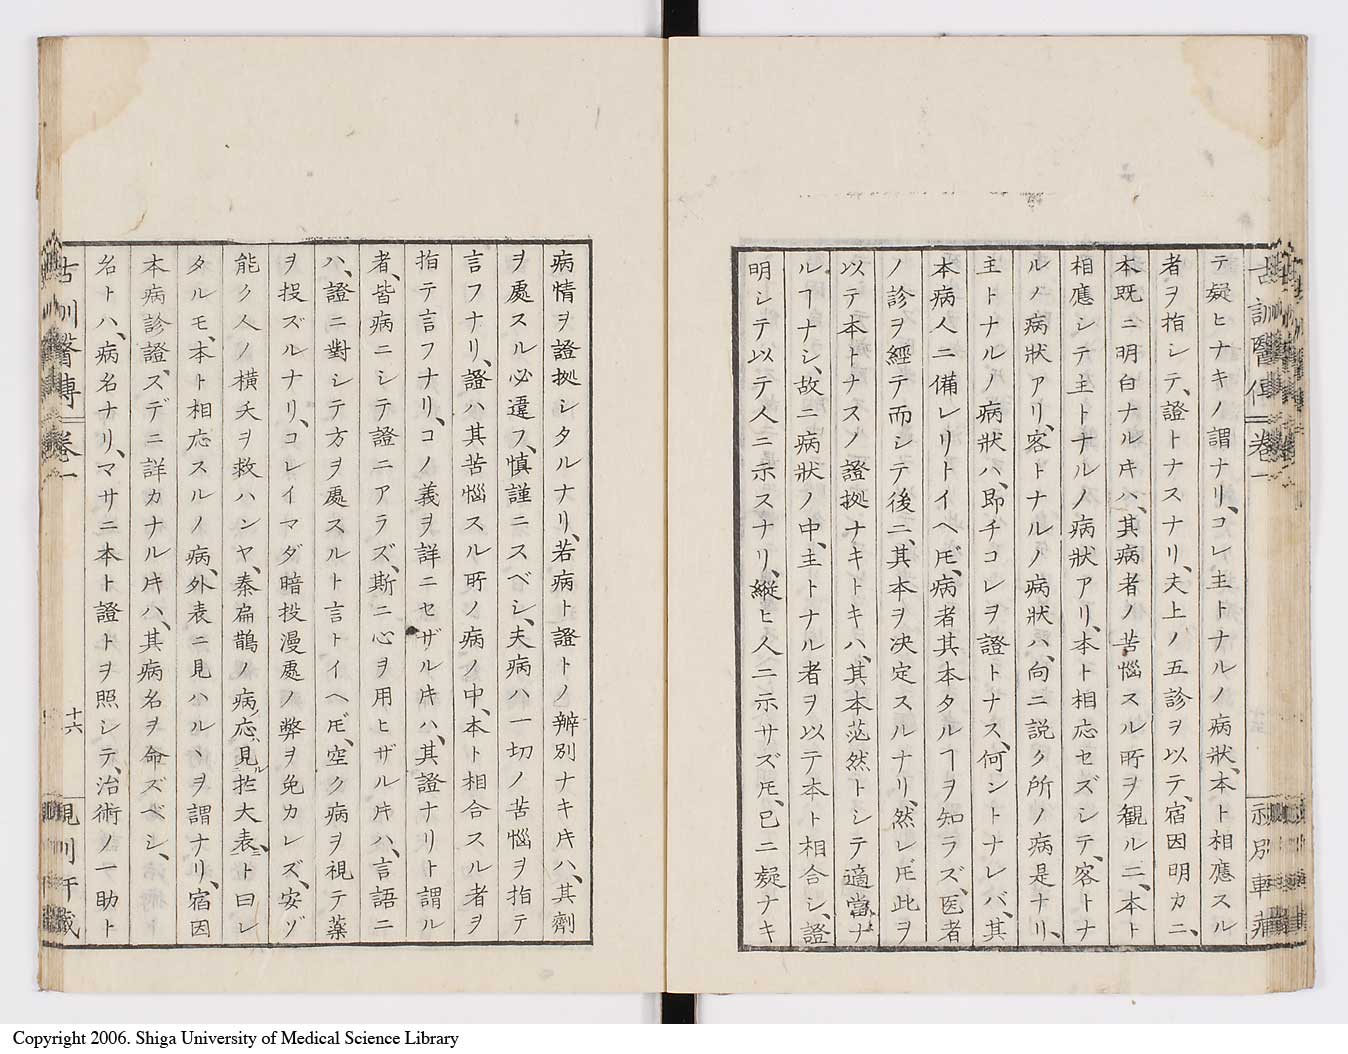 テ疑ヒナキノ謂ナリ、コレ主トナルノ病狀、本ト相應スル
者ヲ指シテ、證トナスナリ、夫上ノ五診ヲ以テ、宿因明カニ、
本既ニ明白ナルキハ、其病者ノ苦惱スル所ヲ観ルニ、本ト
相應シテ主トナルノ病狀アリ、本ト相応セズシテ、客トナ
ルノ病狀アリ、客トナルノ病狀ハ、向ニ説ク所ノ病是ナリ、
主トナルノ病狀ハ、即チコレヲ證トナス、何ントナレバ、其
本病人ニ備レリトイヘ𪜈、病者其本タルヿヲ知ラズ、医者
ノ診ヲ經テ而シテ後ニ、其本ヲ决定スルナリ、然レ𪜈此ヲ
以テ本トナスノ證拠ナキトキハ、其本茫然トシテ適當ナ
ルヿナシ、故ニ病狀ノ中、主トナル者ヲ以テ本ト相合シ、證
明シテ以テ人ニ示スナリ、縦ヒ人ニ示サズ𪜈、已ニ疑ナキ
古訓醫傳 卷一
病情ヲ證拠シタルナリ、若病ト證トノ辨別ナキキハ、其劑
ヲ處スル必違フ、慎謹ニスベシ、夫病ハ一切ノ苦惱ヲ指テ
言フナリ、證ハ其苦惱スル所ノ病ノ中、本ト相合スル者ヲ
指テ言フナリ、コノ義ヲ詳ニセザルキハ、其證ナリト謂ル
者、皆病ニシテ證ニアラズ、斯ニ心ヲ用ヒザルキハ、言語ニ
ハ、證ニ對シテ方ヲ處スルト言トイヘ𪜈、空ク病ヲ視テ薬
ヲ投ズルナリ、コレイマダ暗投漫處ノ弊ヲ免カレズ、安ゾ
能ク人ノ横夭ヲ救ハンヤ、秦扁鵲ノ病応見ル於大表ニト曰レ
タルモ、本ト相応スルノ病、外表ニ見ハルヽヲ謂ナリ、宿因
本病診證、スデニ詳カナルキハ、其病名ヲ命ズベシ、
名トハ、病名ナリ、マサニ本ト證トヲ照シテ、治術ノ一助ト
古訓醫傳 卷一
十六